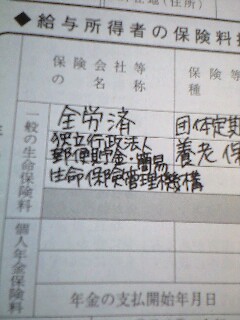 者(住所)
◆給与所得者の保険料控
保険会社等
の名称
保険等
種
一般の生命保険料
全労済
団体定期
独立行政法人
郵便貯金・簡易
生命保険管理機構
養老保
個人年金保険料
年金の支払開始年月日